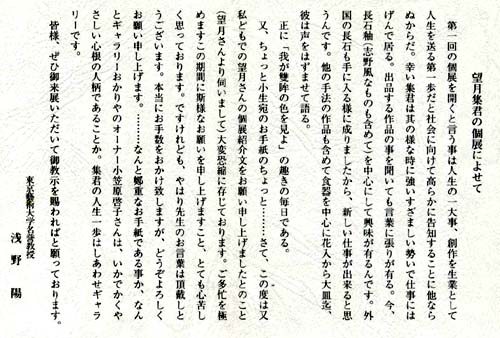 望月集君の個展によせて
第一回の個展を開くと言う事は人生の一大事、創作を生業として
人生を送る第一歩だと社会に向けて高らかに告知することに他なら
ぬからだ。幸い集君は其の様な時に強いすさましい勢いで仕事には
げんで居る。出品する作品の事を聞いても言葉に張りが有る。今、
長石釉(志野風なものも含めて)を中心にして興味が有るんです。外
国の長石も手に入る様に成りましたから、新しい仕事が出来ると思
うんです。他の手法の作品も含めて食器を中心に花入から大皿迄、
彼は声をはずませて語る。
正に「我が雙眸の色を見よ」の趣きの毎日である。
又、ちょっと小生宛のお手紙のちょっと………さて、この度は又
私どもでの望月さんの個展紹介文をお願い申し上げましたとのこと
(望月さんより伺いまして)大変恐縮に存じております。ご多忙を極
めますこの期間に斯様なお願いを申し上げますこと、とても心苦し
く思っております。ですけれども、やはり先生のお言葉は頂戴しと
うございます。本当にお手数をおかけ致しますが、どうぞよろしく
お願い申し上げます。………なんと鄭重なお手紙である事か、なん
とギャラリーおかりやのオーナー小笠原啓子さんは、いかでかくや
さしい心根の人柄であることか。集君の人生一歩はしあわせギャラ
リーです。
皆様、ぜひ御来展いただいて御教示を賜わればと願っております。
東京藝術大学名誉教授
浅野 陽